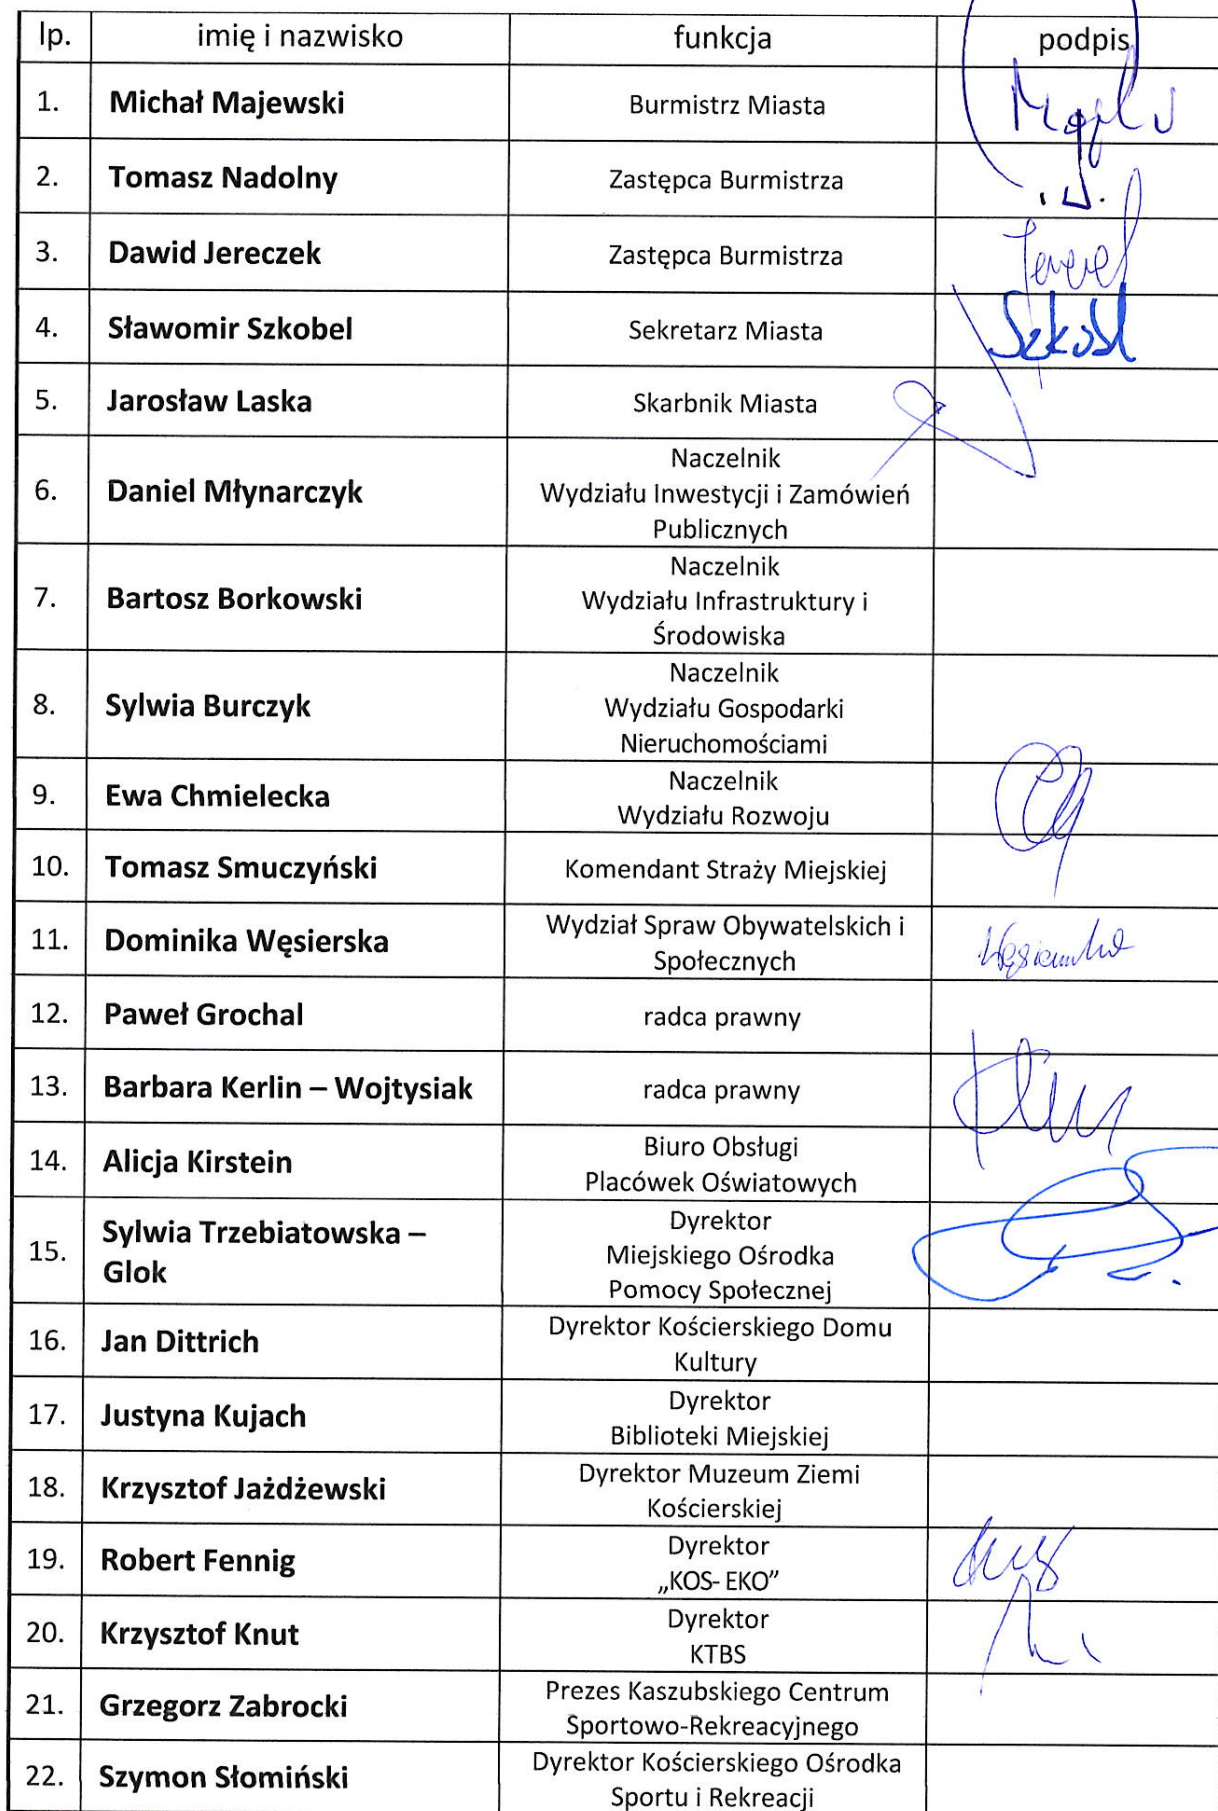 lp. imię i nazwisko funkcja podpis
1. Michał Majewski Burmistrz Miasta
2. Tomasz Nadolny Zastępca Burmistrza
3. Dawid Jereczek Zastępca Burmistrza
4. Sławomir Szkobel Sekretarz Miasta
5. Jarosław Laska Skarbnik Miasta
6. Daniel Młynarczyk Naczelnik
Wydziału Inwestycji i Zamówień
Publicznych
7. Bartosz Borkowski Naczelnik
Wydziału Infrastruktury i
Środowiska
8. Sylwia Burczyk Naczelnik
Wydziału Gospodarki
Nieruchomościami
9. Ewa Chmielecka Naczelnik
Wydziału Rozwoju
10. Tomasz Smuczyński Komendant Straży Miejskiej
11. Dominika Węsierska Wydział Spraw Obywatelskich i
Społecznych
12. Paweł Grochal radca prawny
13. Barbara Kerlin – Wojtysiak radca prawny
14. Alicja Kirstein Biuro Obsługi
Placówek Oświatowych
15. Sylwia Trzebiatowska –
Glok
Dyrektor
Miejskiego Ośrodka
Pomocy Społecznej
16. Jan Dittrich Dyrektor Kościerskiego Domu
Kultury
17. Justyna Kujach Dyrektor
Biblioteki Miejskiej
18. Krzysztof Jażdżewski Dyrektor Muzeum Ziemi
Kościerskiej
19. Robert Fennig Dyrektor
„KOS- EKO”
20. Krzysztof Knut Dyrektor
KTBS
21. Grzegorz Zabrocki Prezes Kaszubskiego Centrum
Sportowo-Rekreacyjnego
22. Szymon Słomiński Dyrektor Kościerskiego Ośrodka
Sportu i Rekreacji